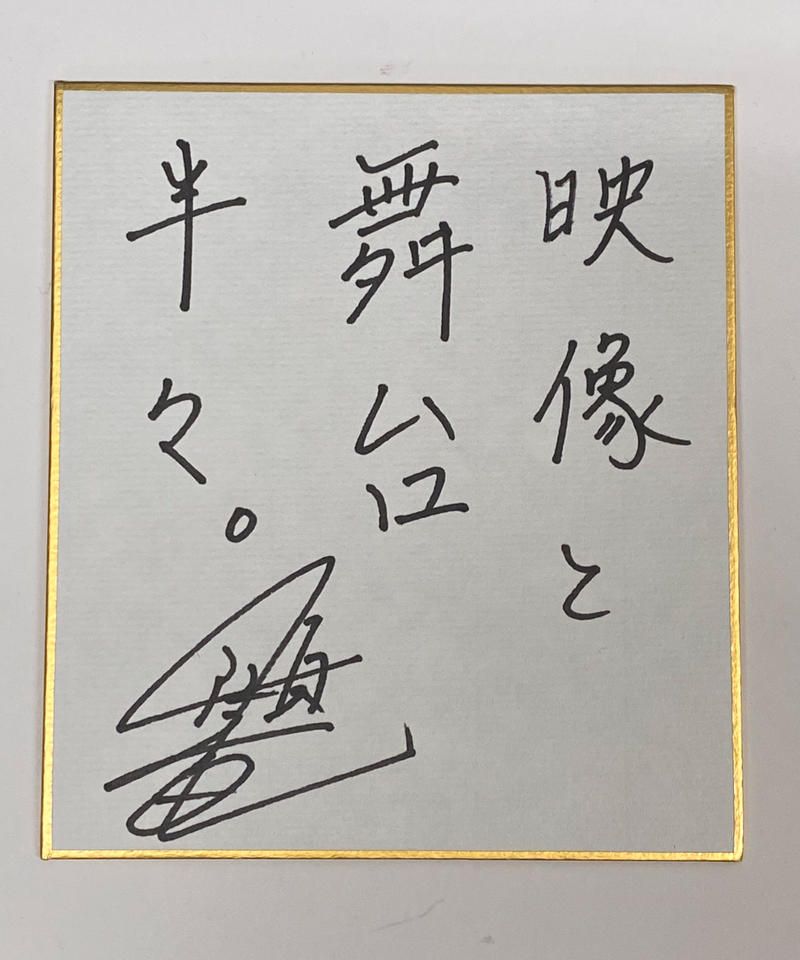 映像と
舞台
半々。